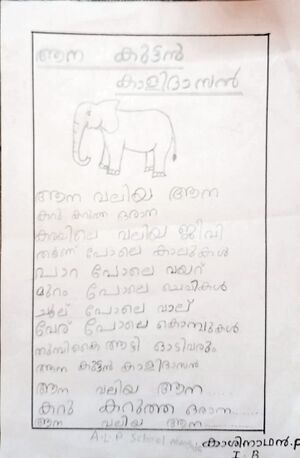 ആന കുട്ടൻ
കാളിദാസൻ
ആന വലിയ ആന
കറു കറുത്ത ഒരാന
കരയിലെ വലിയ ജീവി
തൂണ് പോലെ കാലുകൾ
പാറ പോലെ വയറ്
മുറം പോലെ ചെവികൾ
ചൂല് പോലെ വാല്
വേര് പോലെ കൊമ്പുകൾ
തുമ്പികൈ ആട്ടി ഓടിവരും
ആന കുട്ടൻ കാളിദാസൻ
ആന വലിയ ആന.....
കറു കറുത്ത ഒരാന......
ആന വലിയ ആന......
A.L.P School
കാശിനാഥൻ.P
I. B